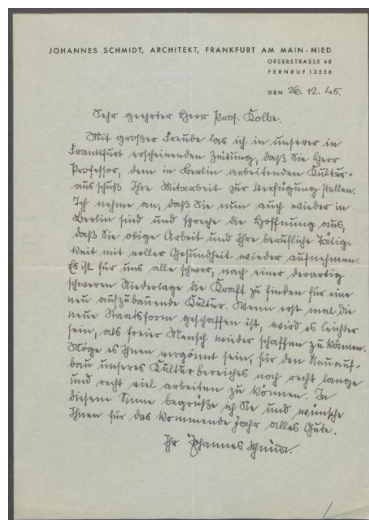 JOHANNES SCHMIDT, ARCHITEKT, FRANKFURT AM MAIN-NIED
OESERSTRASSE 48
FERNRUF 13556
DEN 26.12.45.
Sehr geehrter Herr Prof. Kolbe.
Mit großer Freude las ich in unserer in
Frankfurt erscheinenden Zeitung, daß Sie Herr
Professor, dem in Berlin arbeitenden Kultur-
ausschuß Ihre Mitarbeit zur Verfügung stellen.
Ich nehme an, daß Sie nun auch wieder in
Berlin sind und spreche die Hoffnung aus,
daß Sie obige Arbeit und Ihre berufliche Tätig-
keit mit voller Gesundheit wieder aufnehmen.
Es ist für uns alle schwer, nach einer derartig
schweren Niederlage die Kraft zu finden für eine
neu aufzubauende Kultur. Wenn erst mal die
neue Staatsform geschaffen ist, wird es leichter
sein, als freier Mensch wieder schaffen zu können.
Möge es Ihnen vergönnt sein, für den Neuauf-
bau unseres Kulturbereiches noch recht lange
und recht viel arbeiten zu können. In
diesem Sinne begrüße ich Sie und wünsche
Ihnen für das kommende Jahr alles Gute.
Ihr Johannes Schmidt.